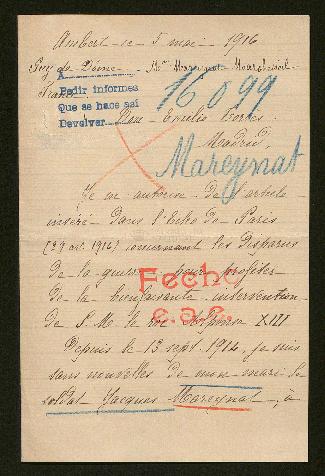 Ambert le 5 mai 1916
Puy de Dôme Mme Mareynat
A
Pedir informes
Que se hace así
Devolver
16099
Don Emilio
Madrid
Mareynat
Je m'autorise de l'article
inséré dans l'Echo de Paris
1916) concernant les disparus
de la guerre pour profiter
Fecho
de la bienfaisante intervention
e.a.c.
de S. M. le roi Alphonse XIII
Depuis le 13 sept. 1914, je suis
sans nouvelles de mon mari le
soldat Jacques Mareynat, à